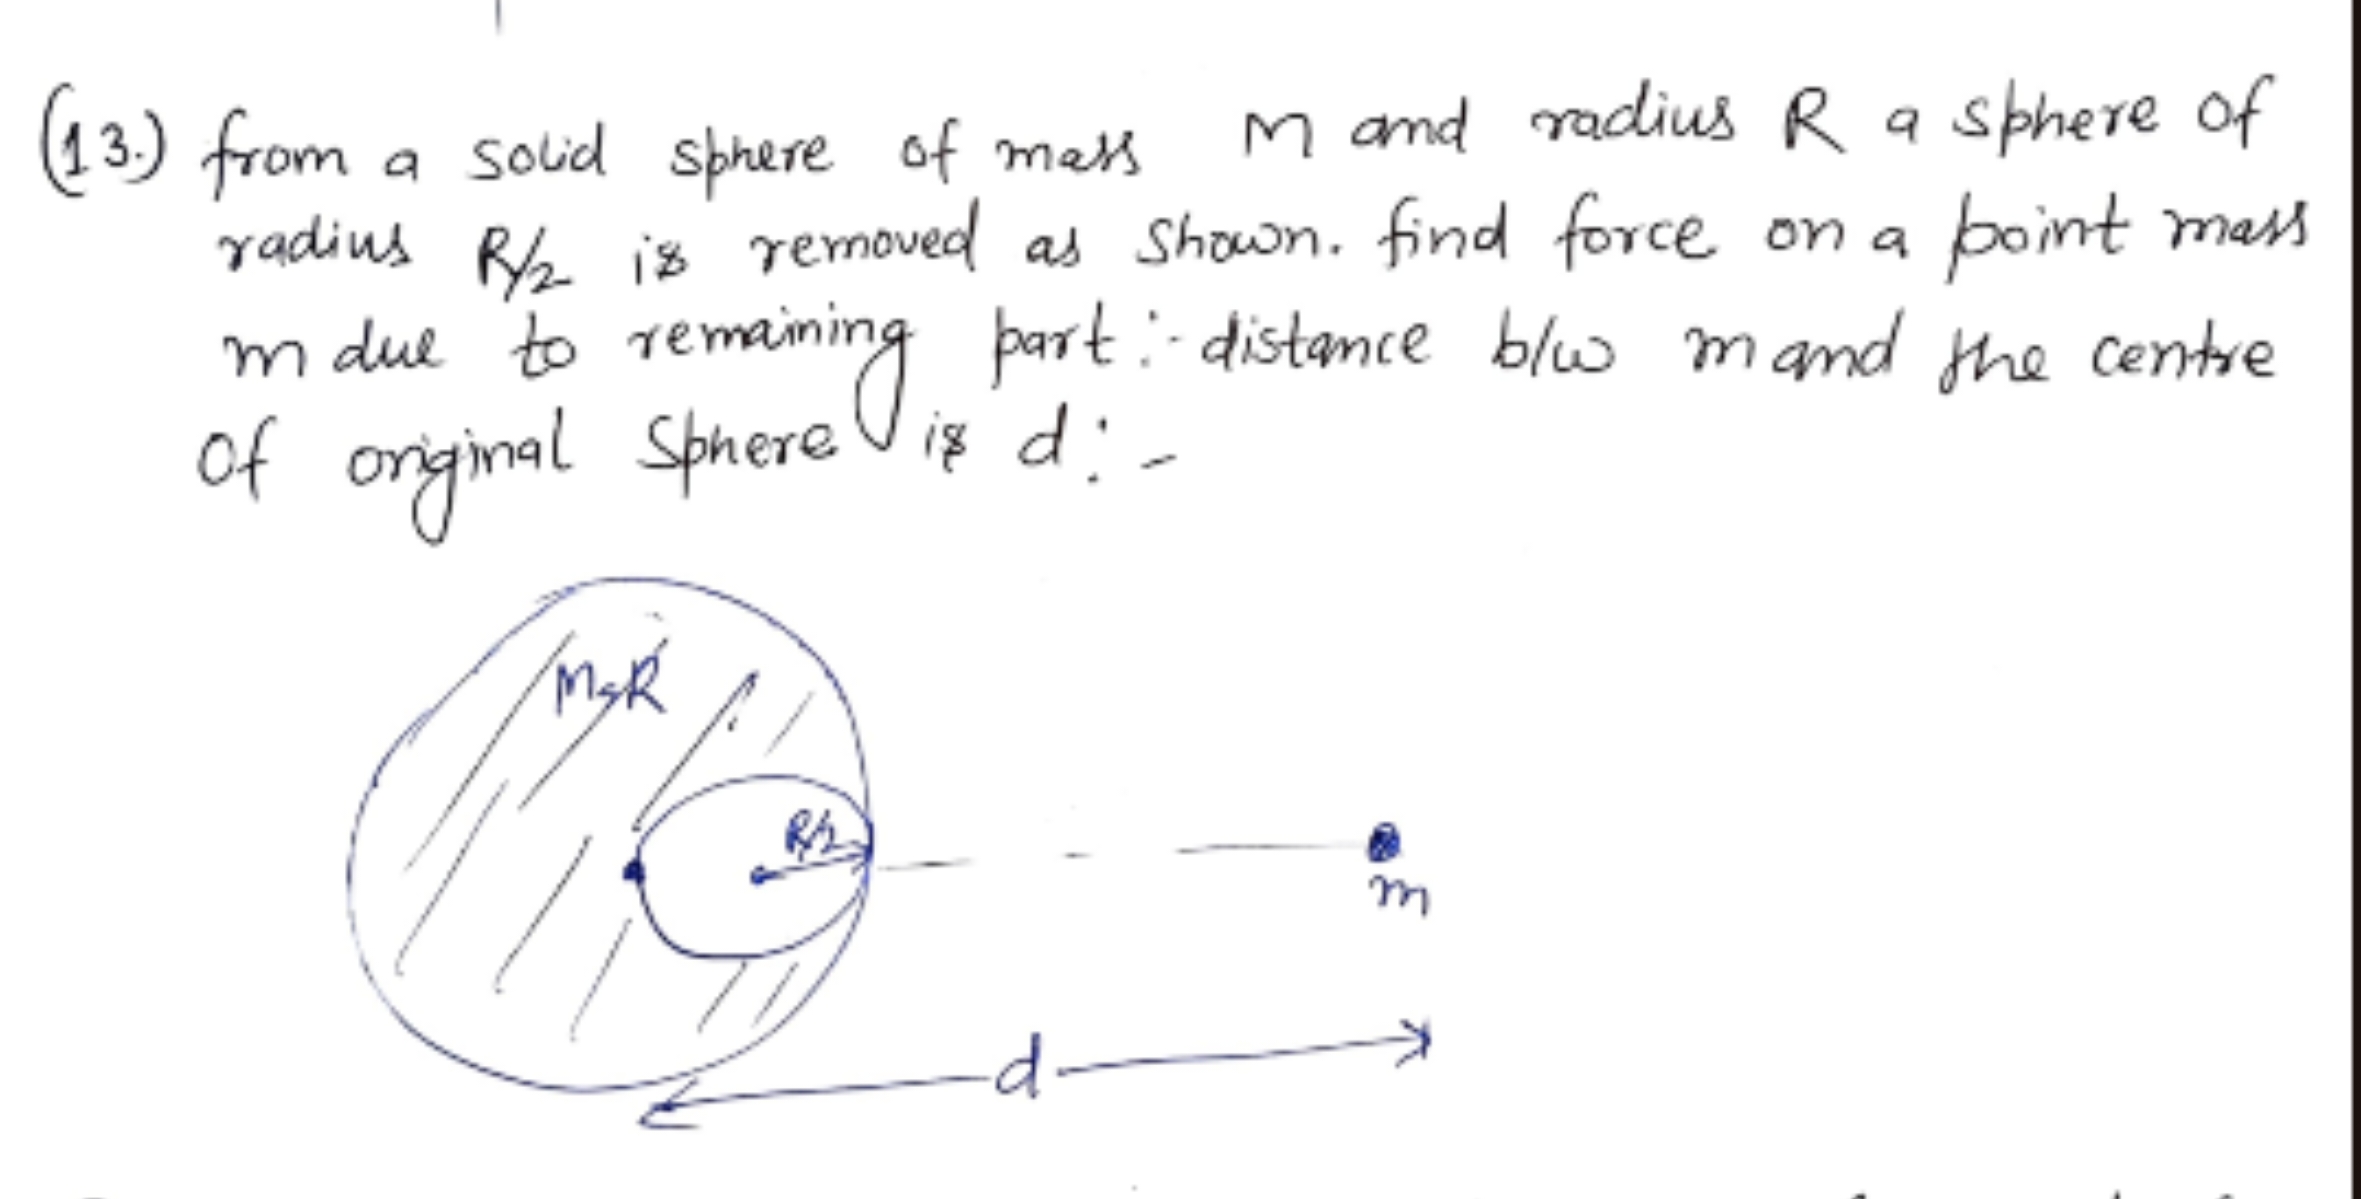 (13.) from a solid sphere of mass M and radius R a sphere of
radius R/2 is removed as shown. find force on a point mass
m due to remaining part :- distance b/w m and the centre
of original sphere is d :-
M, R
R/2
m
d